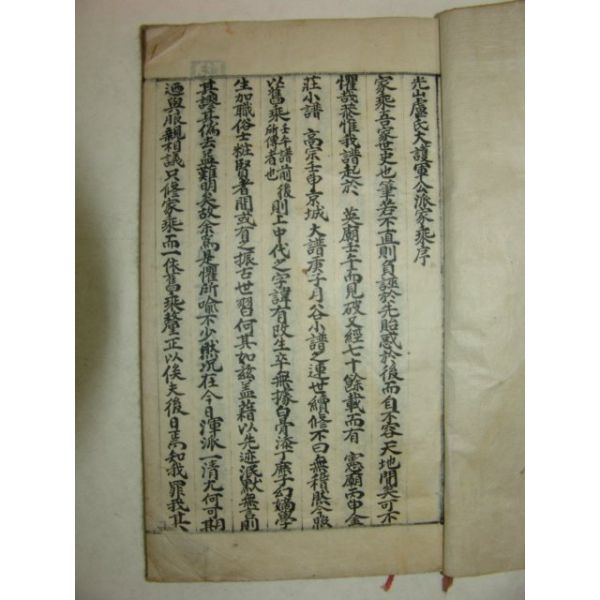 光山盧氏大護軍公派家乘序
家乘吾家世史也筆若不直則負誣於先貽惑於後而自不容天地間矣可不
懼哉恭惟我譜起於 英廟壬午而見破又經七十餘載而有 憲廟丙申金
莊小譜 高宗壬申京城大譜庚子月谷小譜之連世續修不曰無稽然今照
以舊乘壬午譜前所傳者也後則上中代之字諱有改生卒無據白骨漆丁糜子幻嫡學
生加職俗士粧賢者間或有之振古世習何其如玆盖藉以先迹泯默無言則
其謬其僞去益難明矣故余爲是懼所喩不少默况在今日渾派一清尤何可期
迺與服親相議只修家乘而一依舊乘釐正以俟夫後日焉知我罪我其